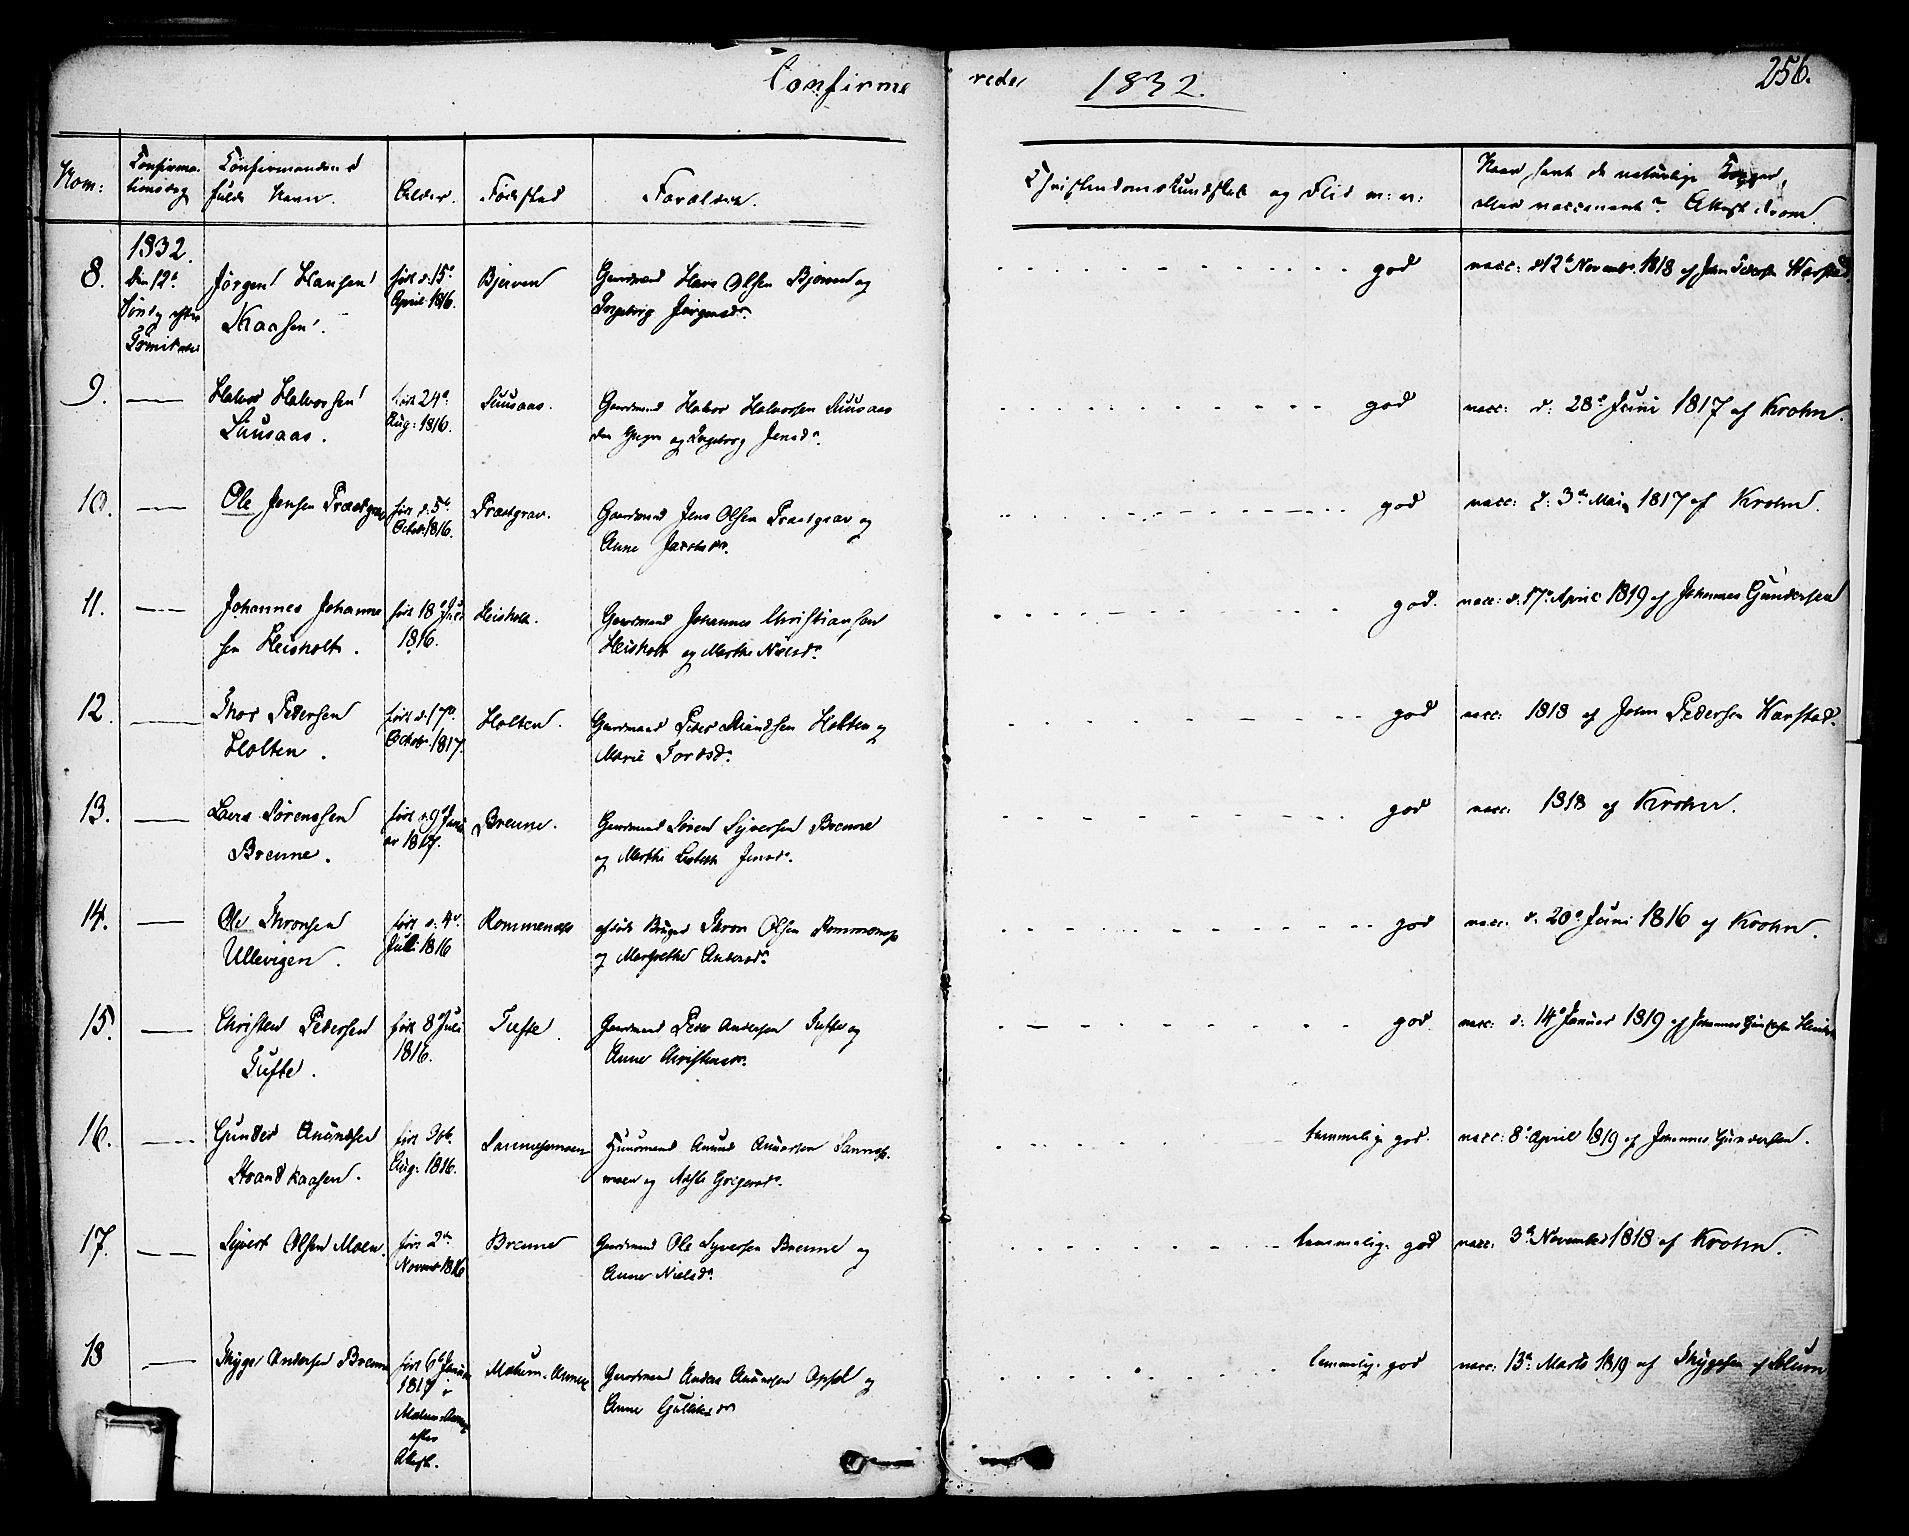 Confirmerede, 1832.
256.
Nom: Confirmationsdag Confirmandens fulde Navn. Alder. Fødested Forældre. Christendomskundskab og Flid m: v: Naar havt de naturlige Kopper, eller vaccineret? Attest derom.
8. 1832. Den 12te Sønd. efter Trinitatis Jørgen Hansen Kaasen. født d. 15de April 1816. Bjerven Gaardmand Hans Olsen Bjerven og
Ingebrig Jørgensdr. god vacc: d 12te Novembr. 1818 af John Pedersen Harstad.
9. — Halvor Halvorsen Suusaas. født 24de Aug: 1816. Suusaas. Gaardmand Halvor Halvorsen Suusaas
den yngre og Ingeborg Jensdr. god vacc: d: 28de Juni 1817 af Krohn.
10. — Ole Jensen Præstgrav født d. 5te Octob. 1816. Præstgrav. Gaardmand Jens Olsen Præstgrav og
Anne Jacobsdr. god vacc: d: 3die Mai 1817 af Krohn.
11. — Johannes Johannesen Heisholt. født 18de Juli 1816. Heisholt. Gaardmand Johannes Christiansen
Heisholt og Marthe Nielsdr. god. vacc: d. 17de April 1819 af Johannes Gundersen
12. — Thor Pedersen Holten. født d. 17de Octobr. 1817. Holten. Gaardmand Peder Amundsen Holten og
Marie Tordsdr. god vacc: 1818 af John Pedersen Harstad.
13. — Lars Sørensen Brenne. født d. 9de Januar 1817. Brenne. Gaardmand Søren Syversen Brenne
og Marthe Lisbeth Jensdr. god vacc: 1818 af Krohn.
14. — Ole Thronsen Ullevigen. født d: 4de Juli 1816 Rommenæs afdøde Bruger Thron Olsen Rommenæs
og Margrethe Andersdr. god vacc: d. 20de Juni 1816 af Krohn.
15. — Christen Pedersen Tufte. født 8de Juli 1816. Tufte. Gaardmand Peder Andersen Tufte og
Anne Christensdr. god. vacc: d: 14de Januar 1819 af Johannes Gundersen
16. — Gunder Anundsen Strandkaasen. født 30te Aug: 1816. Sannesmoen Huusmand Anund Sannesmoen og Aaste Gregersdr. temmelig god. vacc: 8de April 1819 af Johannes Gundersen.
17. — Syvert Olsen Moen. født 2den Novembr 1816 Brenne Gaardmand Ole Syversen Brenne og
Anne Nielsdr. temmelig god vacc: 3die November 1818 af Krohn.
18 — Thyge Andersen Brenne født 6te Januar 1817 i
efter
Attest. Gaardmand Anders Anundsen og
Anne temmelig god vacc: 13de Marts 1819 af Thygesen af Slum